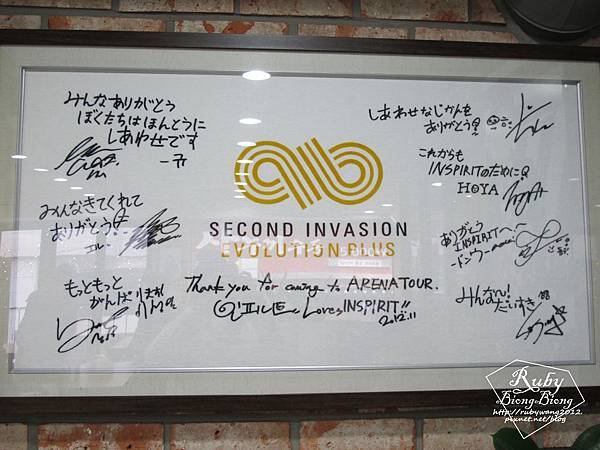 みんなありがとう
ぼくたちはほんとうに
しあわせです
みんなきてくれて
ありがとう
エル
もっともっと
がんば
SECOND INVASION
EVOLUTION PLUS
Thank you for coming to ARENATOUR.
Loves INSPIRIT!!
2012.11
しあわせなじかんを
ありがとう
これからも
INSPIRITのために
HOYA
ありがとう
INSPIRITへ
ドンウ
みんな〜!
だいすき
Ruby
Biong Biong
http://rubywang2012.
pixnet.net/blog